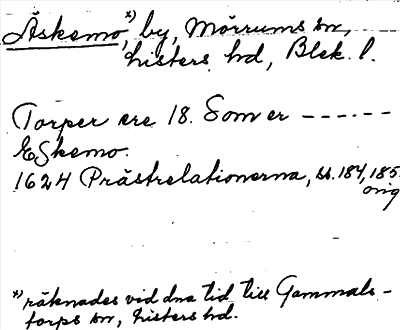 Äskemo,ˣ⁾ by, Mörrums sn,
Listers hd, Blek. l.
Torper ere 18. Som er ------
Eskemo.
1624 Prästrelationerna, ss. 184, 185.
orig
ˣ⁾ räknades vid dna tid till Gammals-
torps sn, Listers hd.